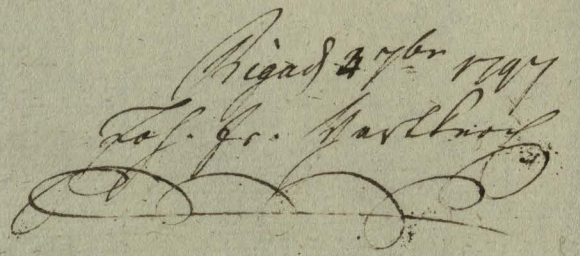 Riga d 7br 1797
Joh. Fr. Hartknoch